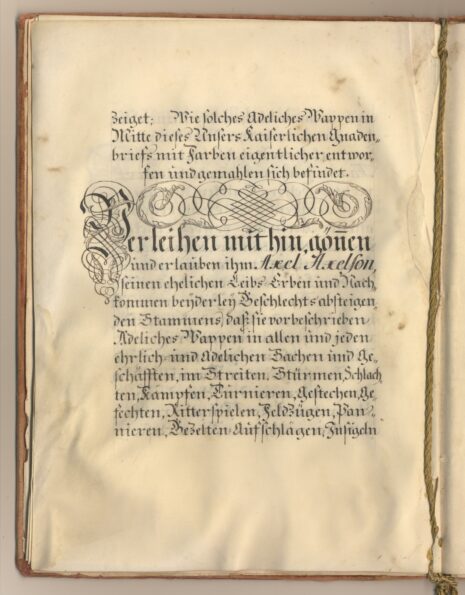 zeiget: Wie solches Adeliches Wappen in
Mitte dieses Unsers Kaiserlichen Gnaden„
briefs mit Farben eigentlicher entwor„
fen und gemahlen sich befindet.
Verleihen mithin, göñen
und erlauben ihm Axel Axelson,
seinen ehelichen Leibs-Erben und Nach„
kommen beyderley Geschlechts absteigen„
den Stammens, daß sie vorbeschrieben
Adeliches Wappen in allen und jeden
ehrlich- und Adelichen Sachen und Ge„
schäfften, im Streiten, Stürmen, Schlach„
ten, Kämpfen, Turnieren, Gestechen, Ge„
fechten, Ritterspielen, Feldzügen, Pan„
nieren, Gezelten-Aufschlagen, Insigeln